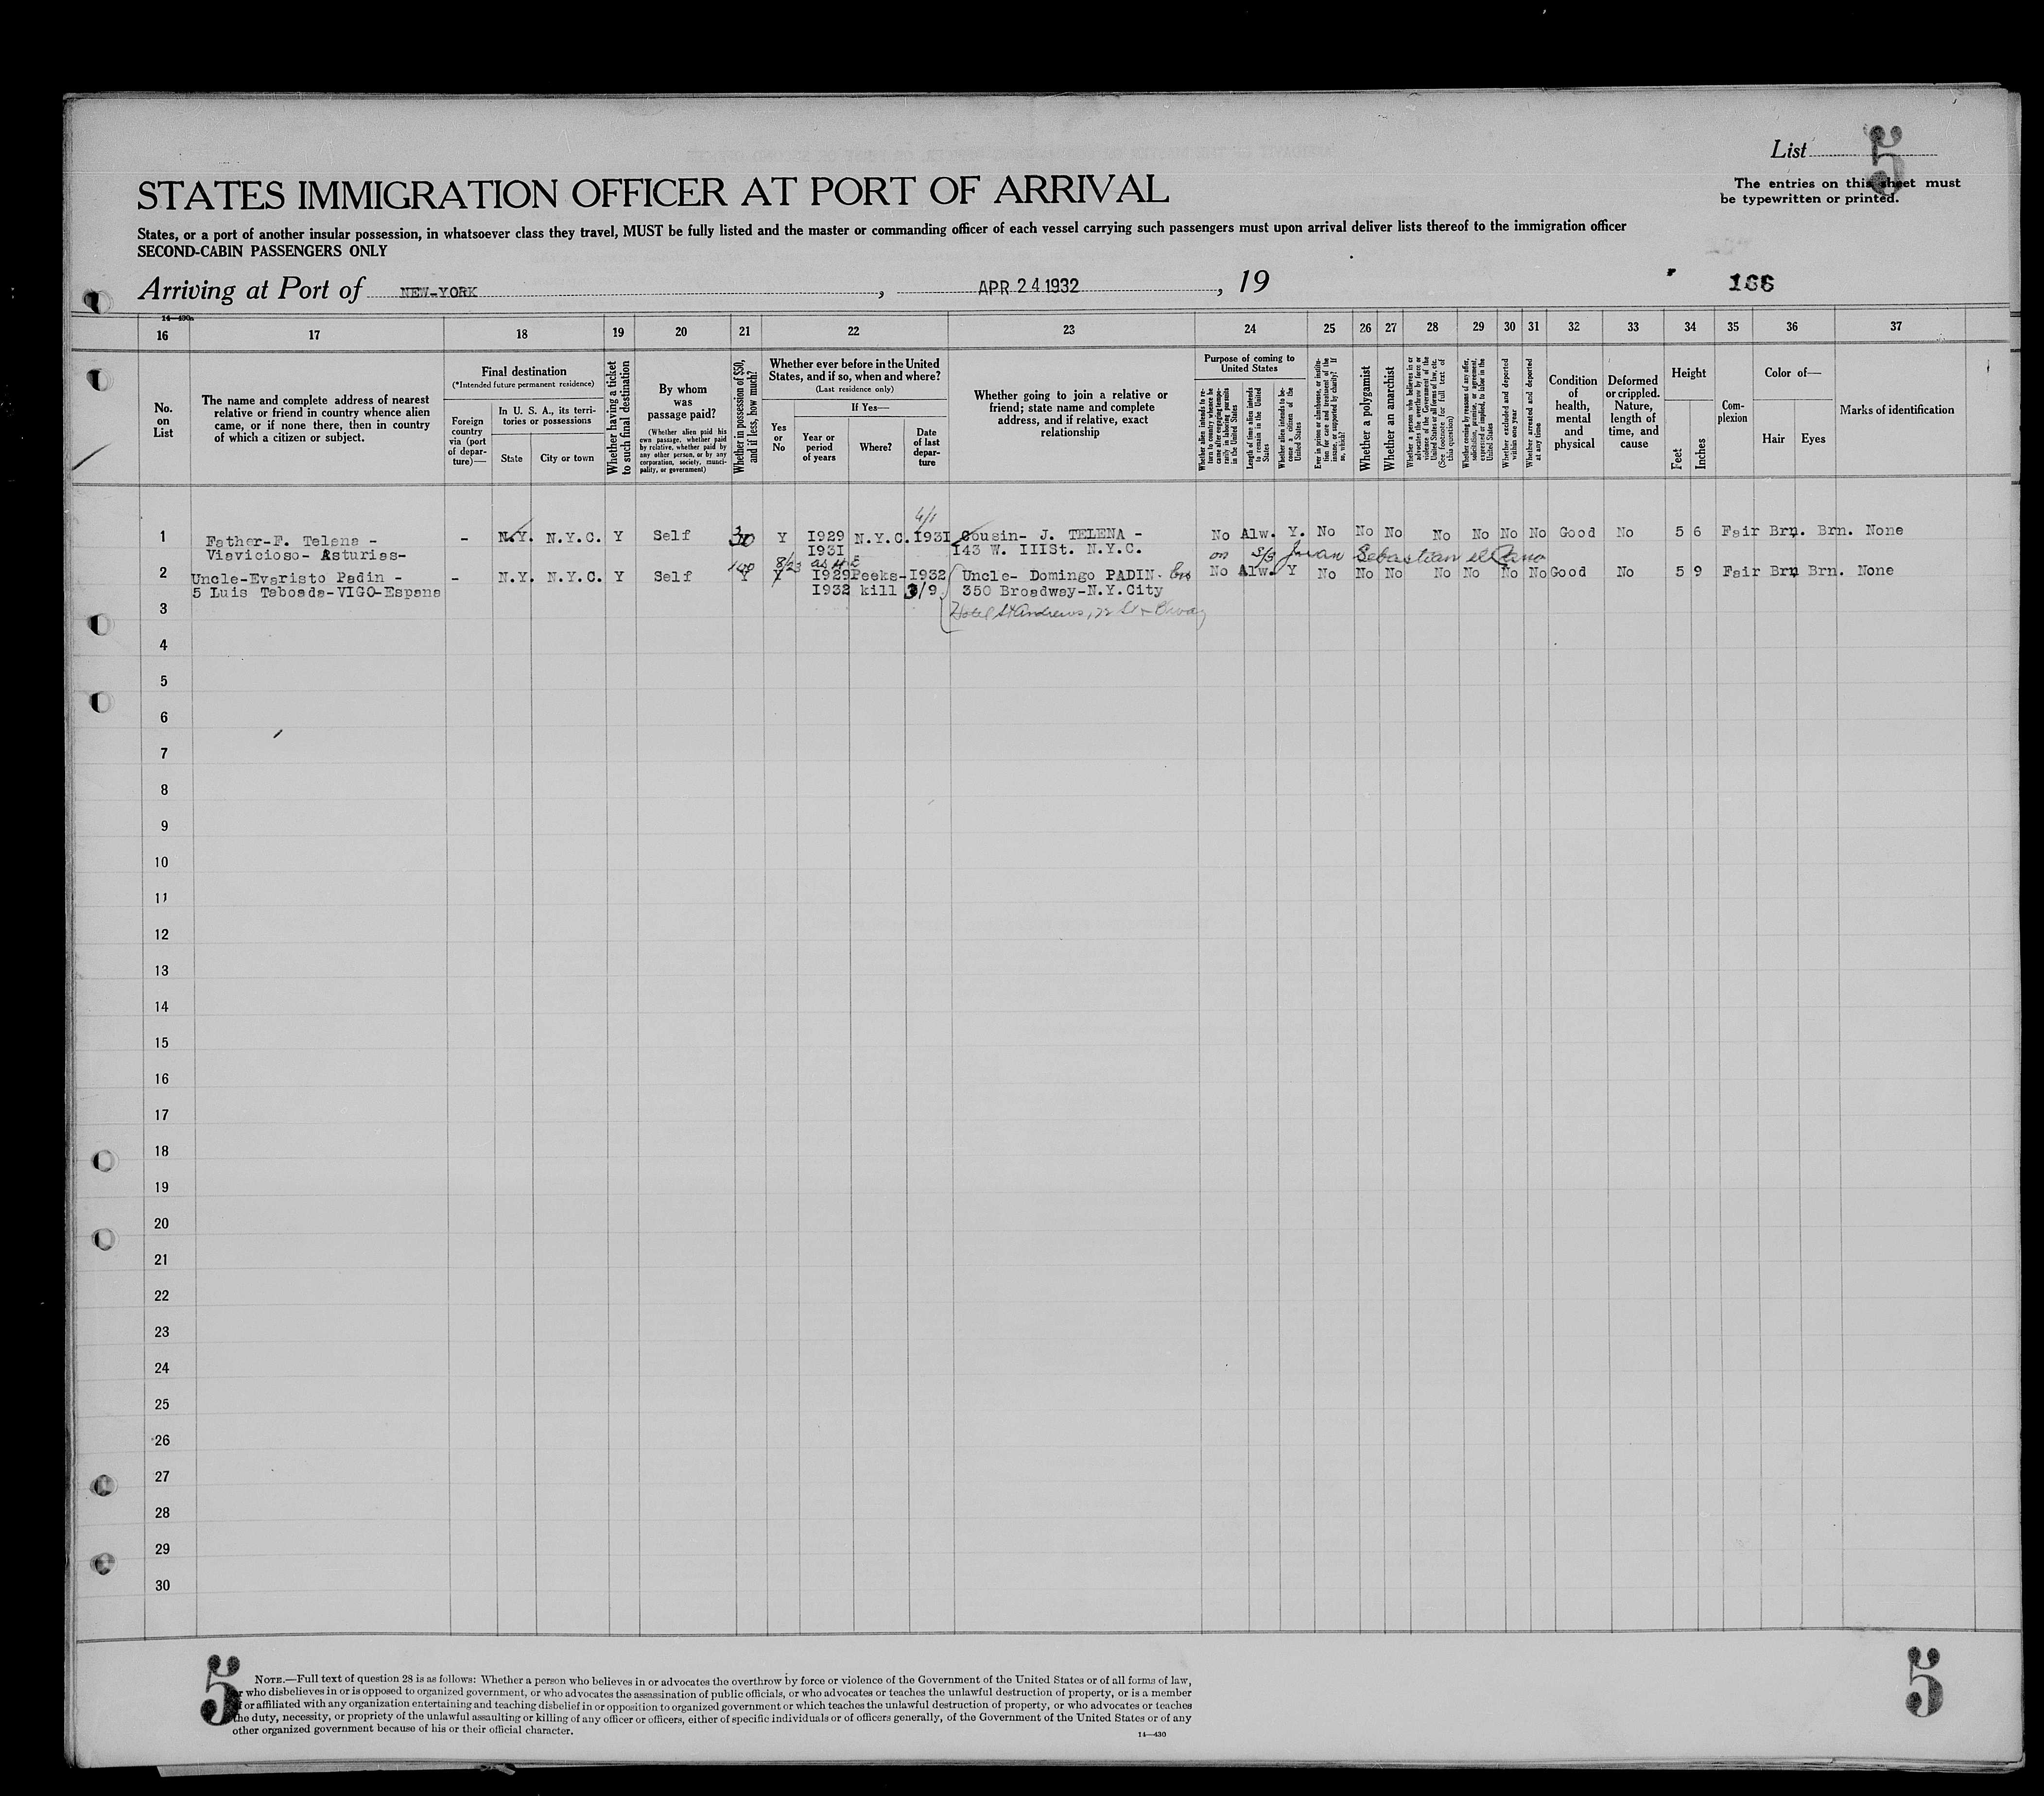 List 5
The entries on this sheet must
be typewritten or printed.
STATES IMMIGRATION OFFICER AT PORT OF ARRIVAL
States, or a port of another insular possession, in whatsoever class they travel, MUST be fully listed and the master or commanding officer of each vessel carrying such passengers must upon arrival deliver lists thereof to the immigration officer
SECOND-CABIN PASSENGERS ONLY
Arriving at Port of NEW-YORK, APR 24 1932, 19
166
14—430
16 17 18 19 20 21 22 23 24 25 26 27 28 29 30 31 32 33 34 35 36 37
No.
on
List
The name and complete address of nearest
relative or friend in country whence alien
came, or if none there, then in country
of which a citizen or subject.
Final destination
(*Intended future permanent residence)
Foreign
country
via (port
of depar-
ture)—
In U. S. A., its terri-
tories or possessions
State
City or town
Whether having a ticket
to such final destination
By whom
was
passage paid?
(Whether alien paid his
own passage, whether paid
by relative, whether paid by
any other person, or by any
corporation, society, munici-
pality, or government)
Whether in possession of $50,
and if less, how much?
Whether ever before in the United
States, and if so, when and where?
(Last residence only)
Yes
or
No
If Yes—
Year or
period
of years
Where?
Date
of last
depar-
ture
Whether going to join a relative or
friend; state name and complete
address, and if relative, exact
relationship
Purpose of coming to
United States
Whether alien intends to re-
turn to country whence he
came after engaging tempo-
rarily in laboring pursuits
in the United States
Length of time alien intends
to remain in the United
States
Whether alien intends to be-
come a citizen of the
United States
Ever in prison or almshouse, or institu-
tion for care and treatment of the
insane, or supported by charity? If
so, which?
Whether a polygamist
Whether an anarchist
Whether a person who believes in or
advocates the overthrow by force or
violence of the Government of the
United States or all forms of law, etc.
(See footnote for full text of
this question)
Whether coming by reasons of any offer,
solicitation, promise, or agreement,
expressed or implied, to labor in the
United States
Whether excluded and deported
within one year
Whether arrested and deported
at any time
Condition
of
health,
mental
and
physical
Deformed
or crippled.
Nature,
length of
time, and
cause
Height
Feet
Inches
Com-
plexion
Color of—
Hair
Eyes
Marks of identification
4/1
1 Father-F. Telena - - N.Y. N.Y.C. Y Self 30 Y I929 N.Y.C. I93I Cousin- J. TELENA - No Alw. Y. No No No No No No No Good No 5 6 Fair Brn. Brn. None
Viavicioso- Asturias- I93I I43 W. IIISt. N.Y.C.
on S/S Juan Sebastian el Cano
8/23
2 Uncle-Evaristo Padin - - N.Y. N.Y.C. Y Self 140 Y Y I929 Peeks- I932 Uncle- Domingo PADIN. No Alw. Y No No No No No No No Good No 5 9 Fair Brn Brn. None
5 Luis Taboada-VIGO-Espana I932 kill 3/9 350 Broadway-N.Y.City
3 Hotel St Andrews, 72 St & Bway
4
5
6
7
8
9
10
11
12
13
14
15
16
17
18
19
20
21
22
23
24
25
26
27
28
29
30
5
NOTE.—Full text of question 28 is as follows: Whether a person who believes in or advocates the overthrow by force or violence of the Government of the United States or of all forms of law,
or who disbelieves in or is opposed to organized government, or who advocates the assassination of public officials, or who advocates or teaches the unlawful destruction of property, or is a member
of or affiliated with any organization entertaining and teaching disbelief in or opposition to organized government or which teaches the unlawful destruction of property, or who advocates or teaches
the duty, necessity, or propriety of the unlawful assaulting or killing of any officer or officers, either of specific individuals or of officers generally, of the Government of the United States or of any
other organized government because of his or their official character.
14—430
5